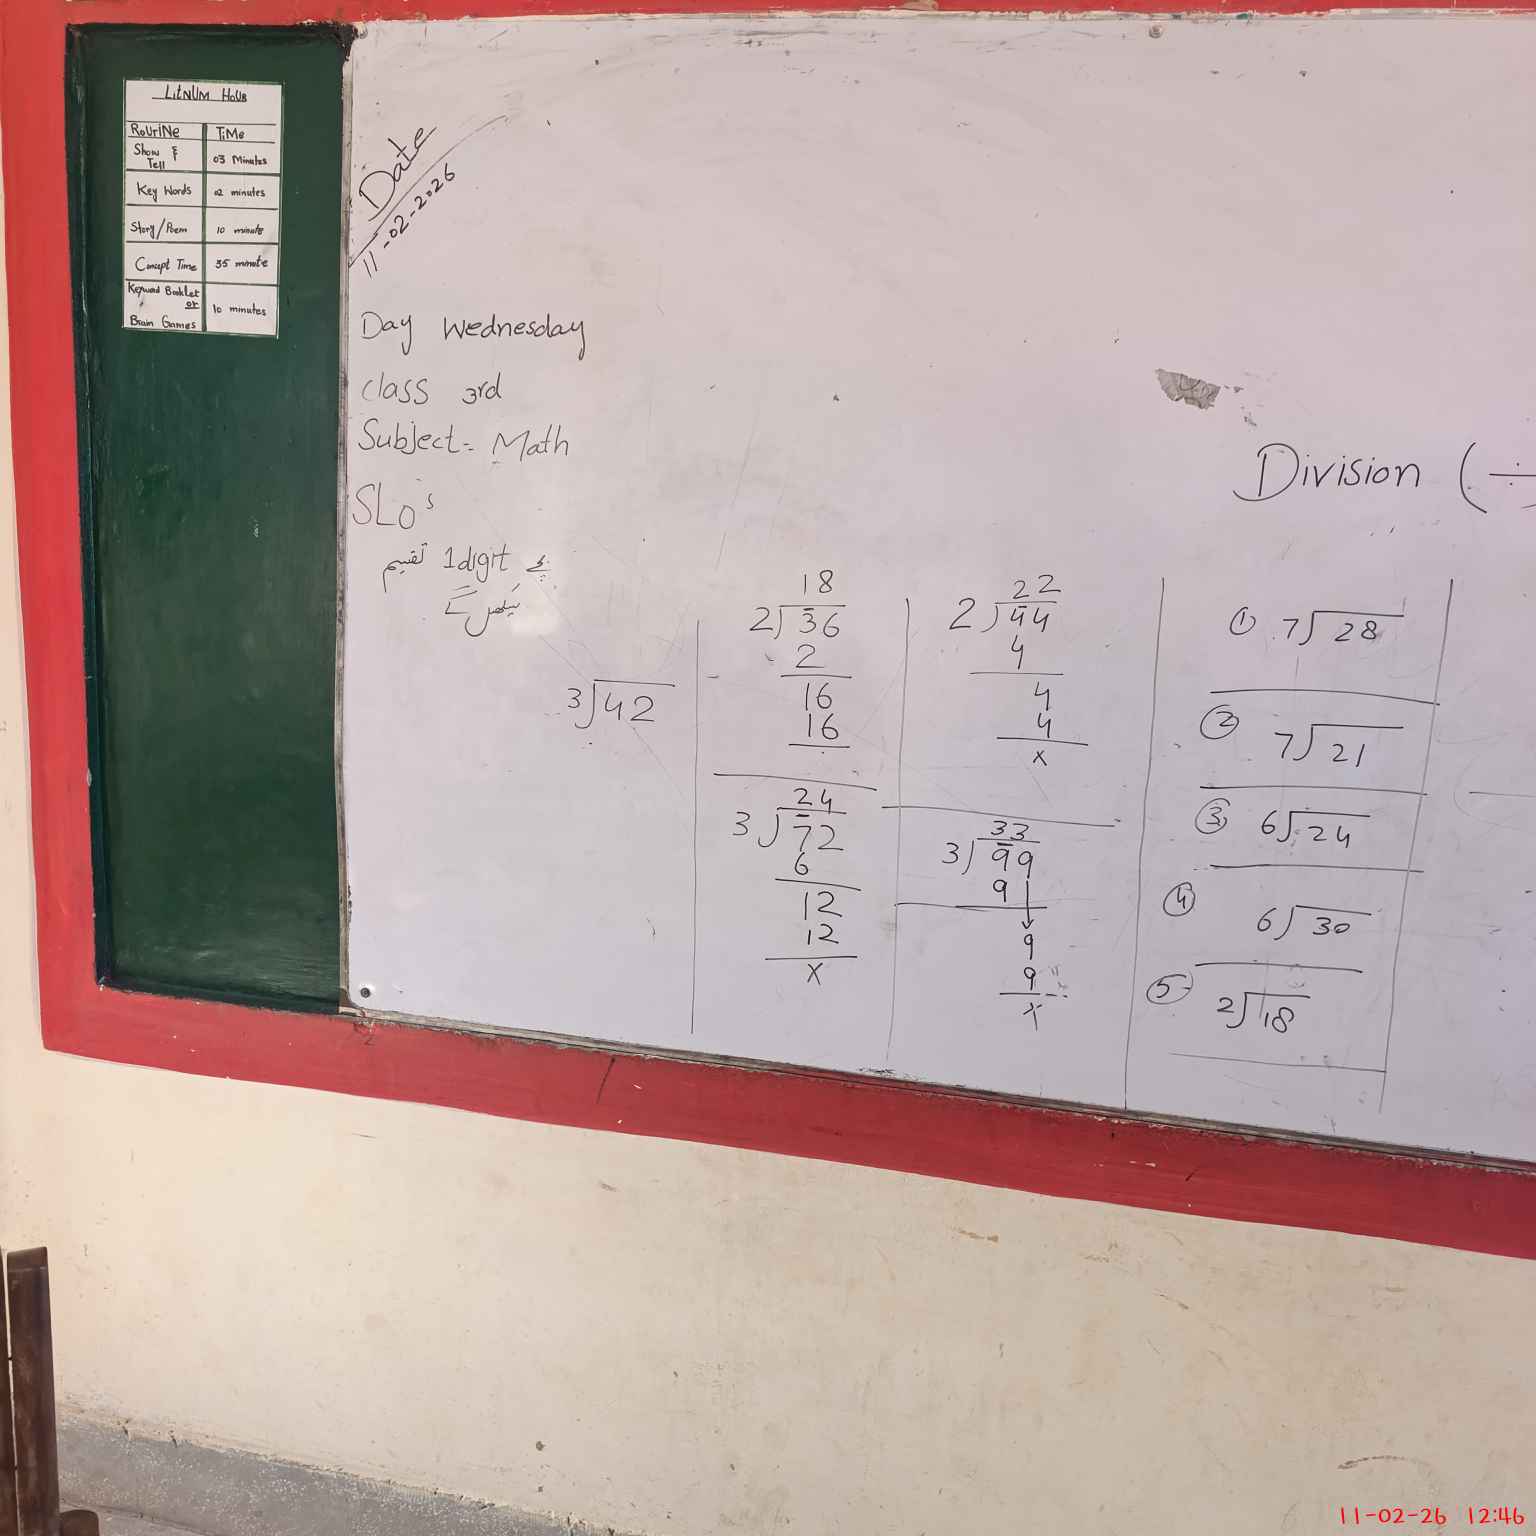 LitNUM HOUR
RoUrINe TiMe
Show & Tell 03 Minutes
Key Words 02 minutes
Story/Poem 10 minute
Concept Time 35 minute
Keyword Booklet or Brain Games 10 minutes
Date
11-02-2026
Day Wednesday
class 3rd
Subject:- Math
SLO's
تقسیم 1digit
Division (÷
3)42
18
2)36
2
16
16
24
3)72
6
12
12
x
22
2)44
4
4
4
x
33
3)99
9
9
9
x
① 7)28
② 7)21
③ 6)24
④ 6)30
⑤ 2)18
11-02-26 12:46